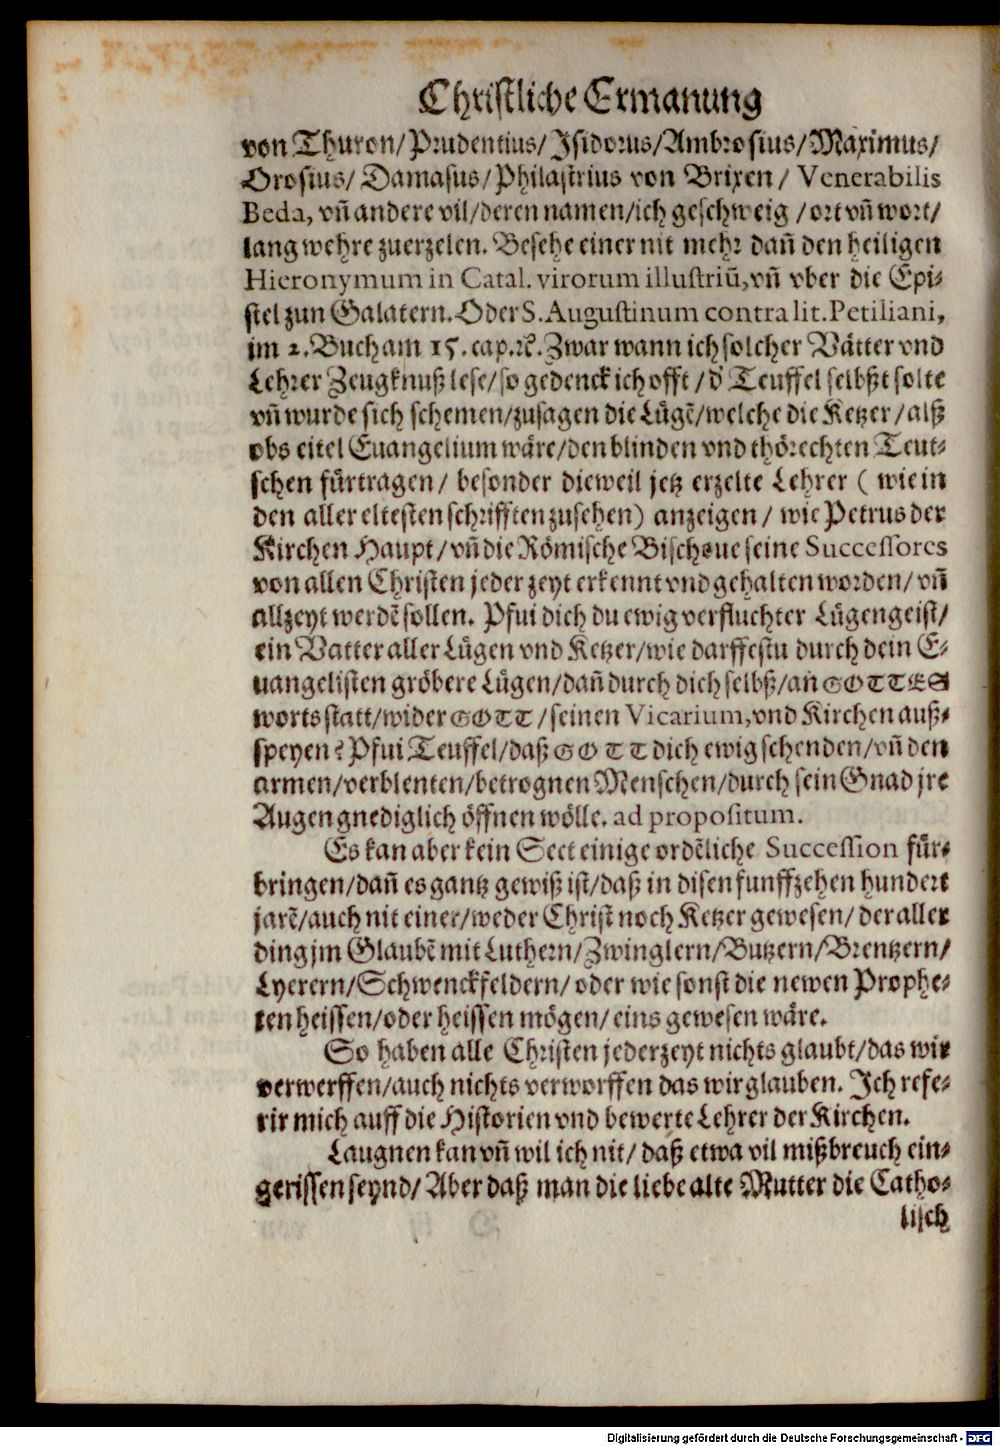 Christliche Ermanung
von Thuron/ Prudentius/ Jsidorus/ Ambrosius/ Maximus/
Orosius/ Damasus/ Philastrius von Brixen/ Venerabilis
Beda, vñ andere vil/ deren namen/ ich geschweig / ort vñ wort/
lang wehre zuerzelen. Besehe einer nit mehr dañ den heiligen
Hieronymum in Catal. virorum illustriũ, vñ vber die Epi-
stel zun Galatern. Oder S. Augustinum contra lit. Petiliani,
im 2. Buch am 15. cap. ꝛc. Zwar wann ich solcher Vätter vnd
Lehrer Zeugknuß lese/ so gedenck ich offt / d' Teuffel selbßt solte
vñ wurde sich schemen/ zusagen die Lügẽ/ welche die Ketzer / alß
obs eitel Euangelium wäre/ den blinden vnd thörechten Teut-
schen fürtragen/ besonder dieweil jetz erzelte Lehrer ( wie in
den aller eltesten schrifften zusehen) anzeigen / wie Petrus der
Kirchen Haupt/ vñ die Römische Bischoue seine Successores
von allen Christen jeder zeyt erkennt vnd gehalten worden/ vñ
allzeyt werdẽ sollen. Pfui dich du ewig verfluchter Lügengeist/
ein Vatter aller Lügen vnd Ketzer/ wie darffestu durch dein E-
uangelisten gröbere Lügen/ dañ durch dich selbß/ an GOTTES
worts statt/ wider GOTT / seinen Vicarium, vnd Kirchen auß-
speyen? Pfui Teuffel/ daß GOTT dich ewig schenden/ vñ den
armen/ verblenten/ betrognen Menschen/ durch sein Gnad jre
Augen gnediglich öffnen wölle. ad propositum.
Es kan aber kein Sect einige ordẽliche Succession für-
bringen/ dañ es gantz gewiß ist/ daß in disen funffzehen hundert
jarẽ/ auch nit einer/ weder Christ noch Ketzer gewesen/ der aller
ding jm Glaubẽ mit Luthern/ Zwinglern/ Butzern/ Brentzern/
Lyerern/ Schwenckfeldern/ oder wie sonst die newen Prophe-
ten heissen/ oder heissen mögen/ eins gewesen wäre.
So haben alle Christen jederzeyt nichts glaubt/ das wir
verwerffen/ auch nichts verworffen das wir glauben. Jch refe-
rir mich auff die Historien vnd bewerte Lehrer der Kirchen.
Laugnen kan vñ wil ich nit/ daß etwa vil mißbreuch ein-
gerissen seynd/ Aber daß man die liebe alte Mutter die Catho-
lisch
Digitalisierung gefördert durch die Deutsche Forschungsgemeinschaft - DFG